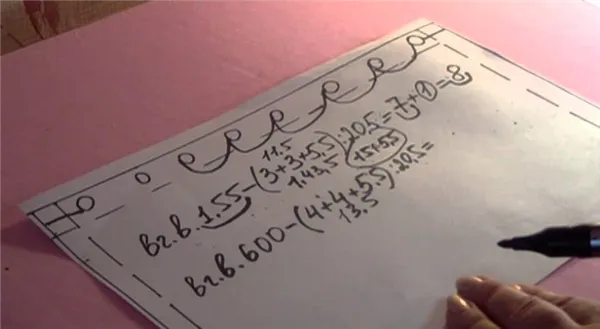 11.5
вг.в.1.55-(3+3+5,5):20,5=7+1=8
1.43,5 151:5,5
вг.в.600-(4+4+5.5):20,5=
13.5